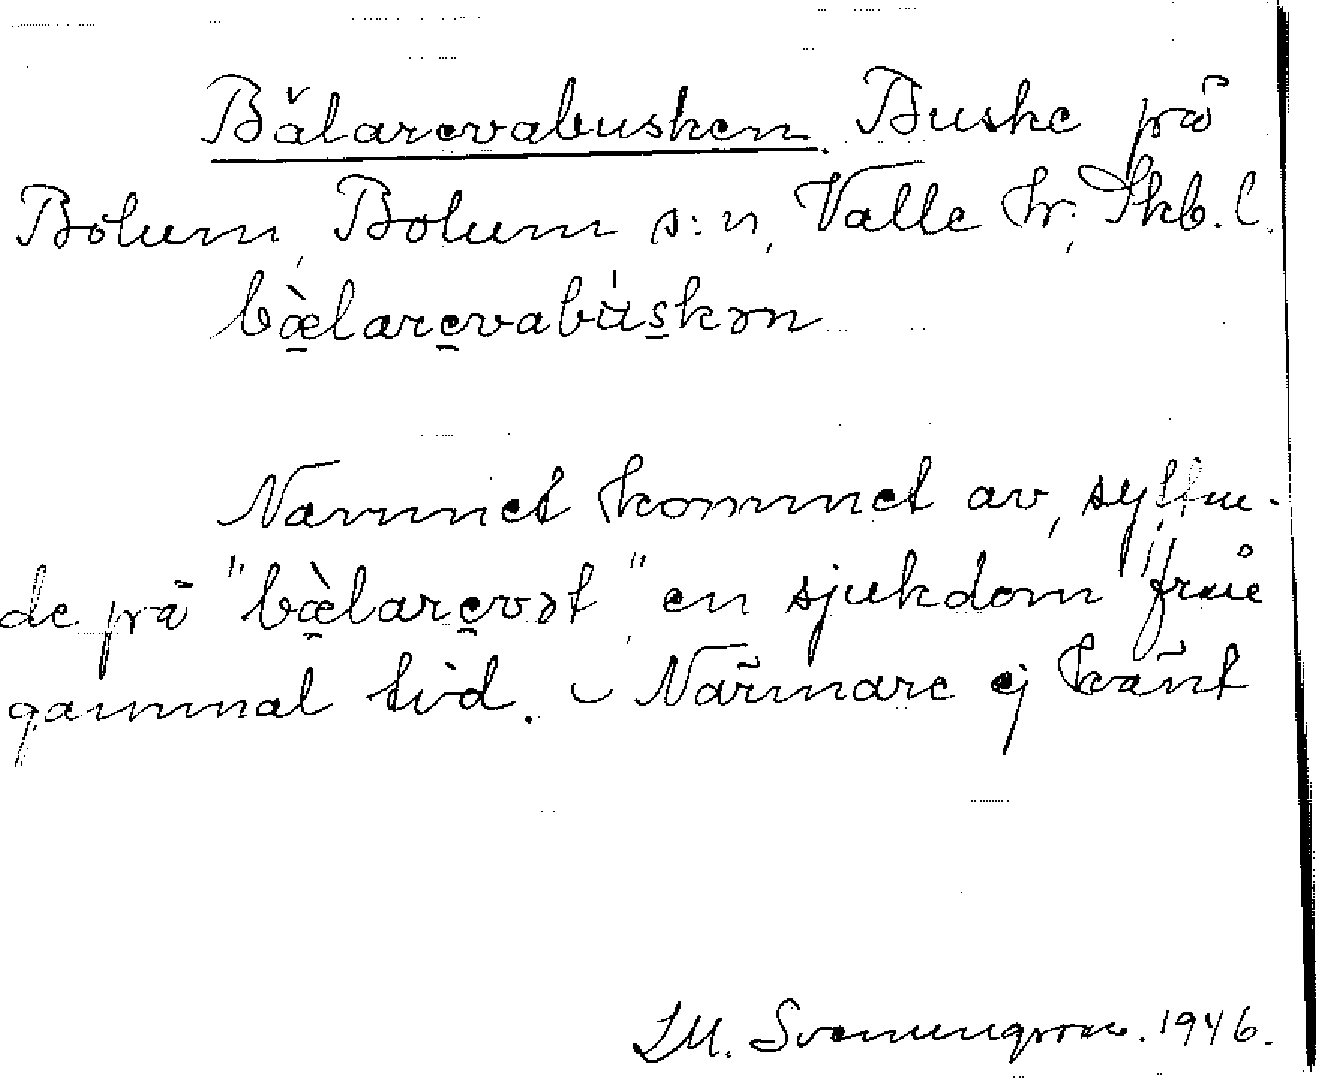 Bälarevabusken. Buske på
Bolum, Bolum s:n, Valle hr; Skb. l.
bæ̀larevabúskən
Namnet kommet av, syftan-
de på "bæ̀larevət", en sjukdom från
gammal tid. – Närmare ej känt
1946.